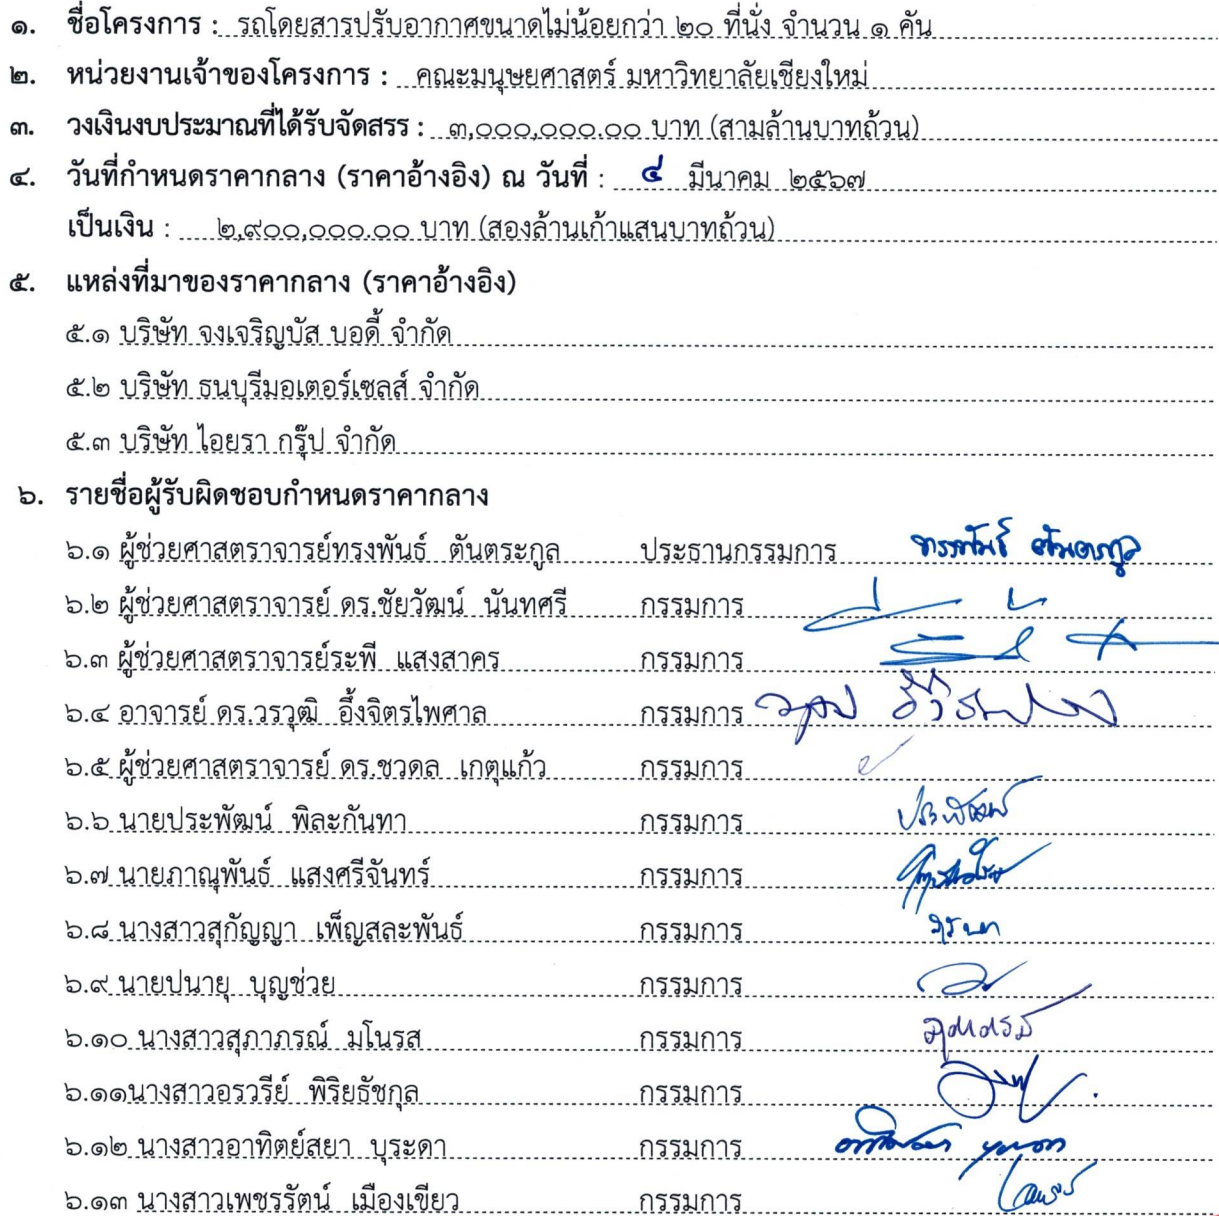 ๑. ชื่อโครงการ : รถโดยสารปรับอากาศขนาดไม่น้อยกว่า ๒๐ ที่นั่ง จำนวน ๑ คัน
๒. หน่วยงานเจ้าของโครงการ : คณะมนุษยศาสตร์ มหาวิทยาลัยเชียงใหม่
๓. วงเงินงบประมาณที่ได้รับจัดสรร : ๓,๐๐๐,๐๐๐.๐๐ บาท (สามล้านบาทถ้วน)
๔. วันที่กำหนดราคากลาง (ราคาอ้างอิง) ณ วันที่ : ๔ มีนาคม ๒๕๖๗
เป็นเงิน : ๒,๙๐๐,๐๐๐.๐๐ บาท (สองล้านเก้าแสนบาทถ้วน)
๕. แหล่งที่มาของราคากลาง (ราคาอ้างอิง)
๕.๑ บริษัท จงเจริญบัส บอดี้ จำกัด
๕.๒ บริษัท ธนบุรีมอเตอร์เซลส์ จำกัด
๕.๓ บริษัท ไอยรา กรุ๊ป จำกัด
๖. รายชื่อผู้รับผิดชอบกำหนดราคากลาง
๖.๑ ผู้ช่วยศาสตราจารย์ทรงพันธ์ ตันตระกูล ประธานกรรมการ ทรงพันธ์ ตันตระกูล
๖.๒ ผู้ช่วยศาสตราจารย์ ดร.ชัยวัฒน์ นันทศรี กรรมการ
๖.๓ ผู้ช่วยศาสตราจารย์ระพี แสงสาคร กรรมการ
๖.๔ อาจารย์ ดร.วรวุฒิ อึ้งจิตรไพศาล กรรมการ
๖.๕ ผู้ช่วยศาสตราจารย์ ดร.ชวดล เกตุแก้ว กรรมการ
๖.๖ นายประพัฒน์ พิละกันทา กรรมการ ประพัฒน์
๖.๗ นายภาณุพันธ์ แสงศรีจันทร์ กรรมการ
๖.๘ นางสาวสุกัญญา เพ็ญสละพันธ์ กรรมการ
๖.๙ นายปนายุ บุญช่วย กรรมการ
๖.๑๐ นางสาวสุภาภรณ์ มโนรส กรรมการ
๖.๑๑นางสาวอรวรีย์ พิริยธัชกุล กรรมการ
๖.๑๒ นางสาวอาทิตย์สยา บุระดา กรรมการ
๖.๑๓ นางสาวเพชรรัตน์ เมืองเขียว กรรมการ